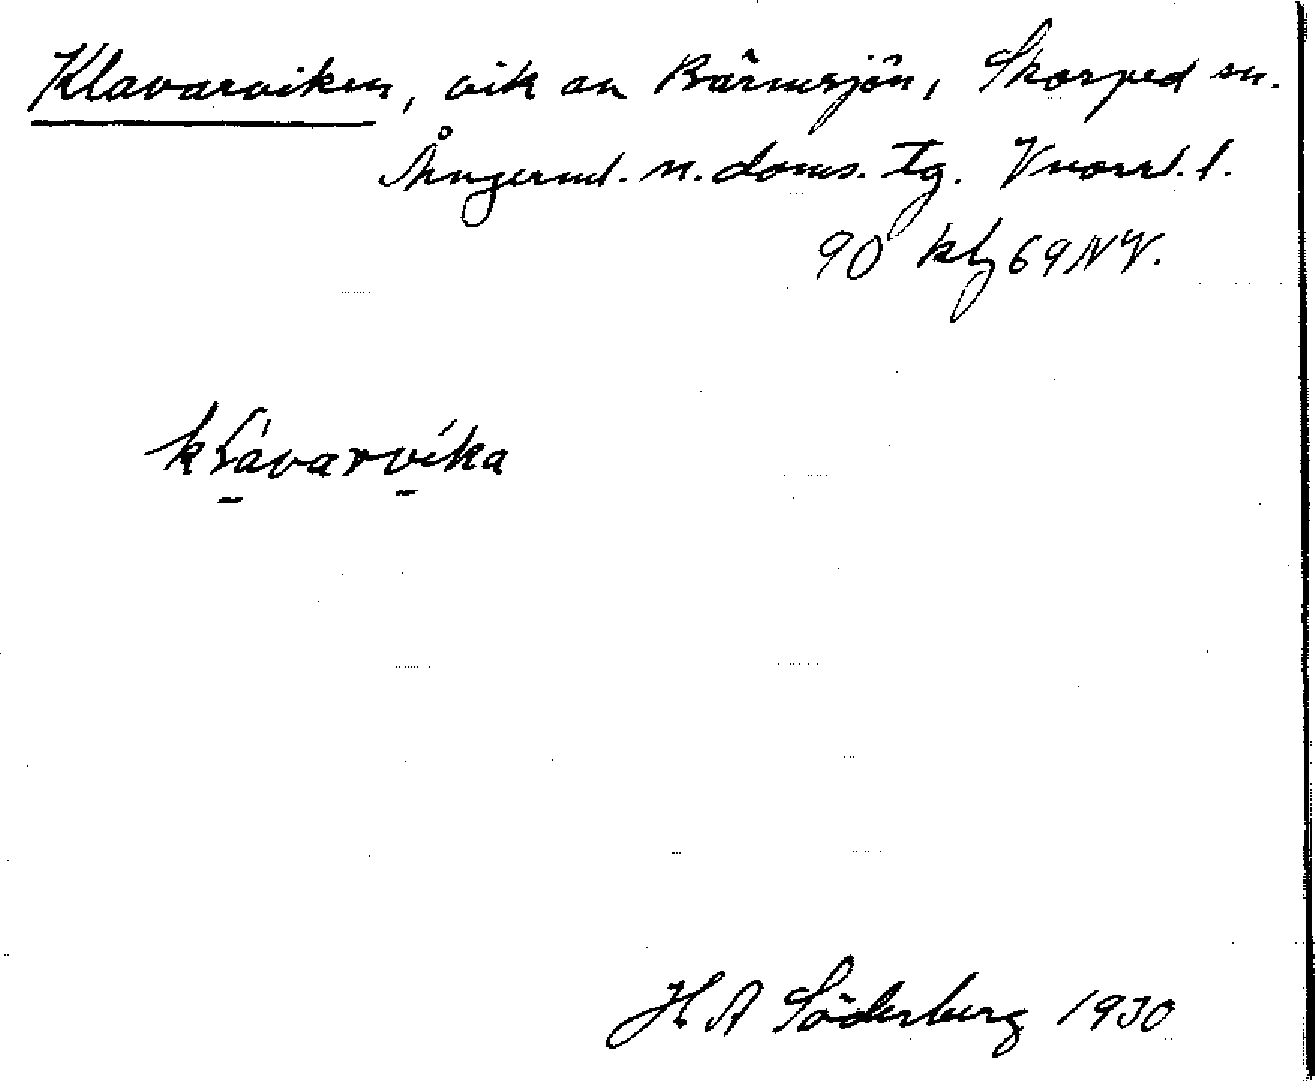 Klavarviken, vik av Bärmsjön, Skorped sn.
Ångerml. n. doms. tg. Vnorrl. l.
90 kbl 69 NV.
klavarvika
H A Söderberg 1930